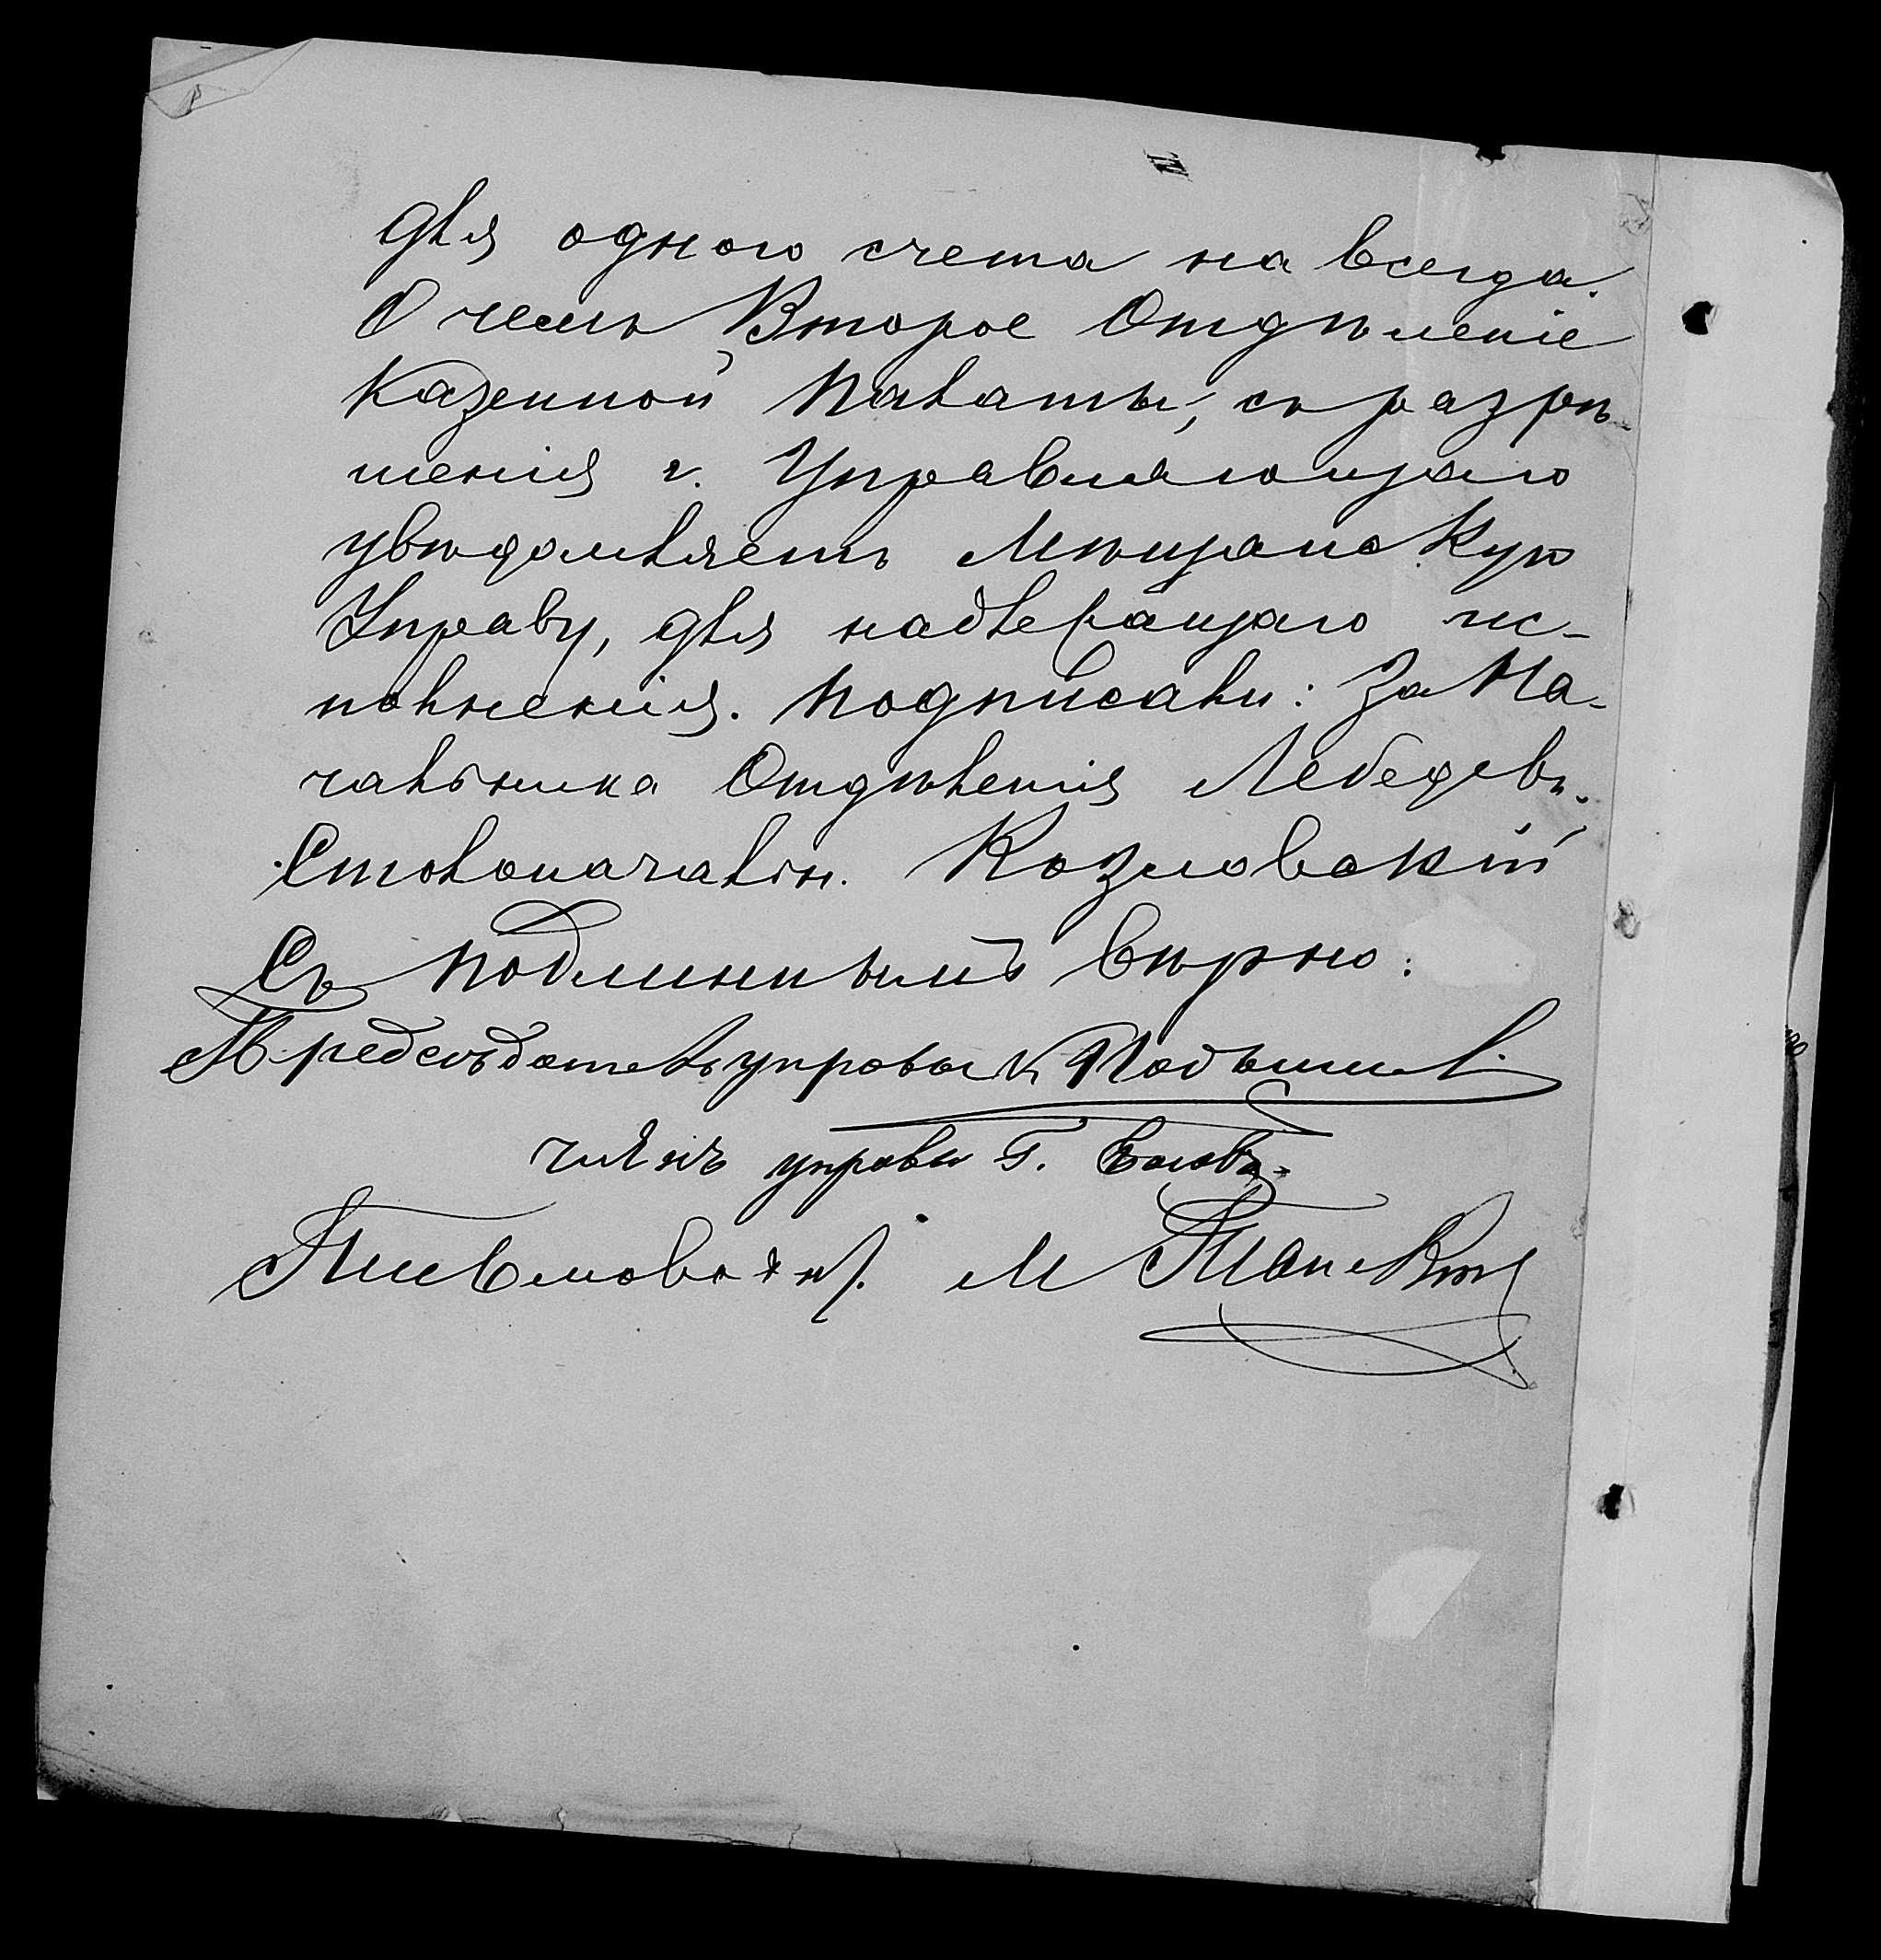 для одного счета на всегда.
О чемъ Второе Отдѣленіе
Казенной Палаты, съ разрѣ-
шенія г. Управляющаго
увѣдомляетъ Мѣщанскую
Управу, для надлежащаго ис-
полненія. Подписали: За На-
чальника Отдѣленія Лебедевъ.
Столоначальн. Козловскій
Съ подлиннымъ вѣрно:
Предсѣдатель управы
членъ управы Г.
М